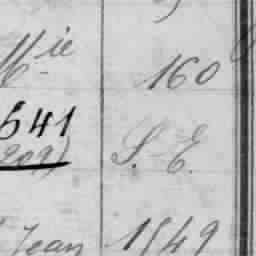 Mie 160
541
209) S. E.
Jean 1549